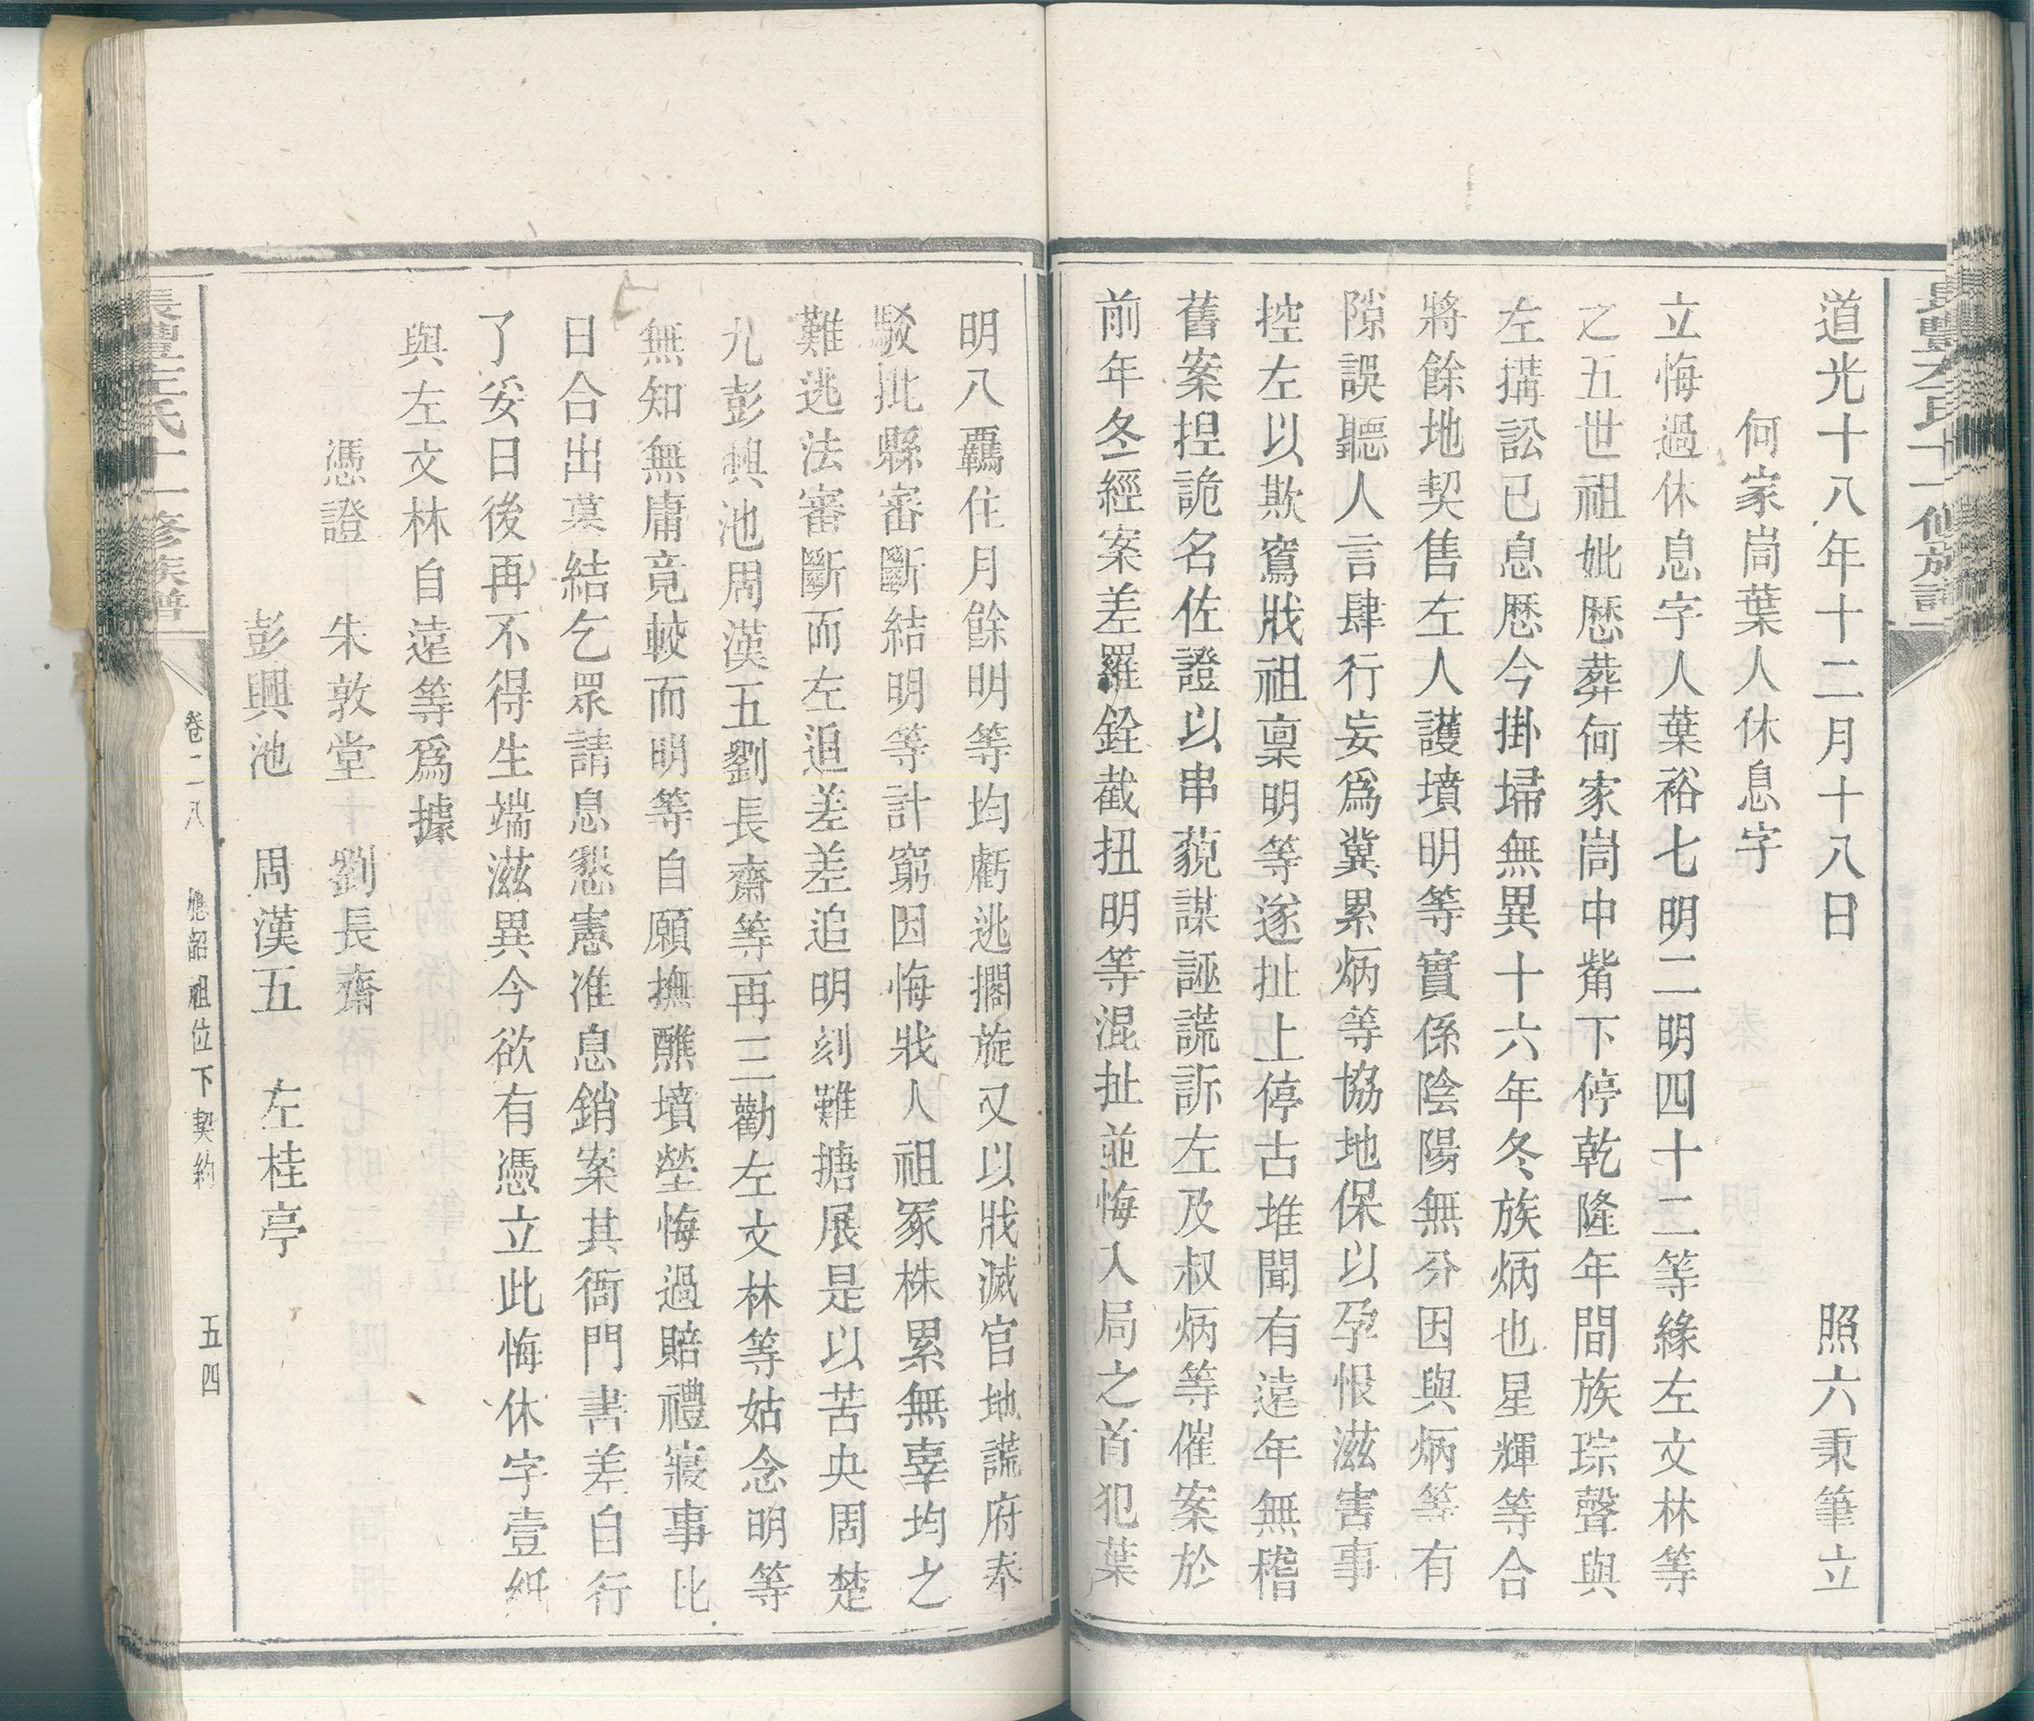 道光十八年十二月十八日　照六秉筆立
何家崗葉人休息字
立悔過休息字人葉裕七明二明四十二等緣左文林等
之五世祖妣歷葬何家崗中觜下停乾隆年間族琮聲與
左搆訟已息歷今掛掃無異十六年冬族炳也星輝等合
將餘地契售左人護墳明等實係陰陽無分因與炳等有
隙誤聽人言肆行妄爲冀累炳等協地保以孕恨滋害事
控左以欺竁戕祖稟明等遂扯上停古堆聞有遠年無稽
舊案捏詭名佐證以串藐謀誣謊訴左及叔炳等催案於
前年冬經案差羅銓截扭明等混扯並悔入局之首犯葉
明八覊住月餘明等均虧逃擱旋又以戕滅官地謊府奉
駁批縣審斷結明等計窮因悔戕人祖冢株累無辜均之
難逃法審斷而左追差差追明刻難搪展是以苦央周楚
九彭興池周漢五劉長齋等再三勸左文林等姑念明等
無知無庸竟較而明等自願撫醮墳塋悔過賠禮寢事比
日合出葉結乞眾請息懇憲准息銷案其衙門書差自行
了妥日後再不得生端滋異今欲有憑立此悔休字壹紙
與左文林自遠等爲據
憑證　朱敦堂　劉長齋
彭興池　周漢五　左桂亭
長豐左氏十一修族譜
卷二八　韶祖位下契約　五四